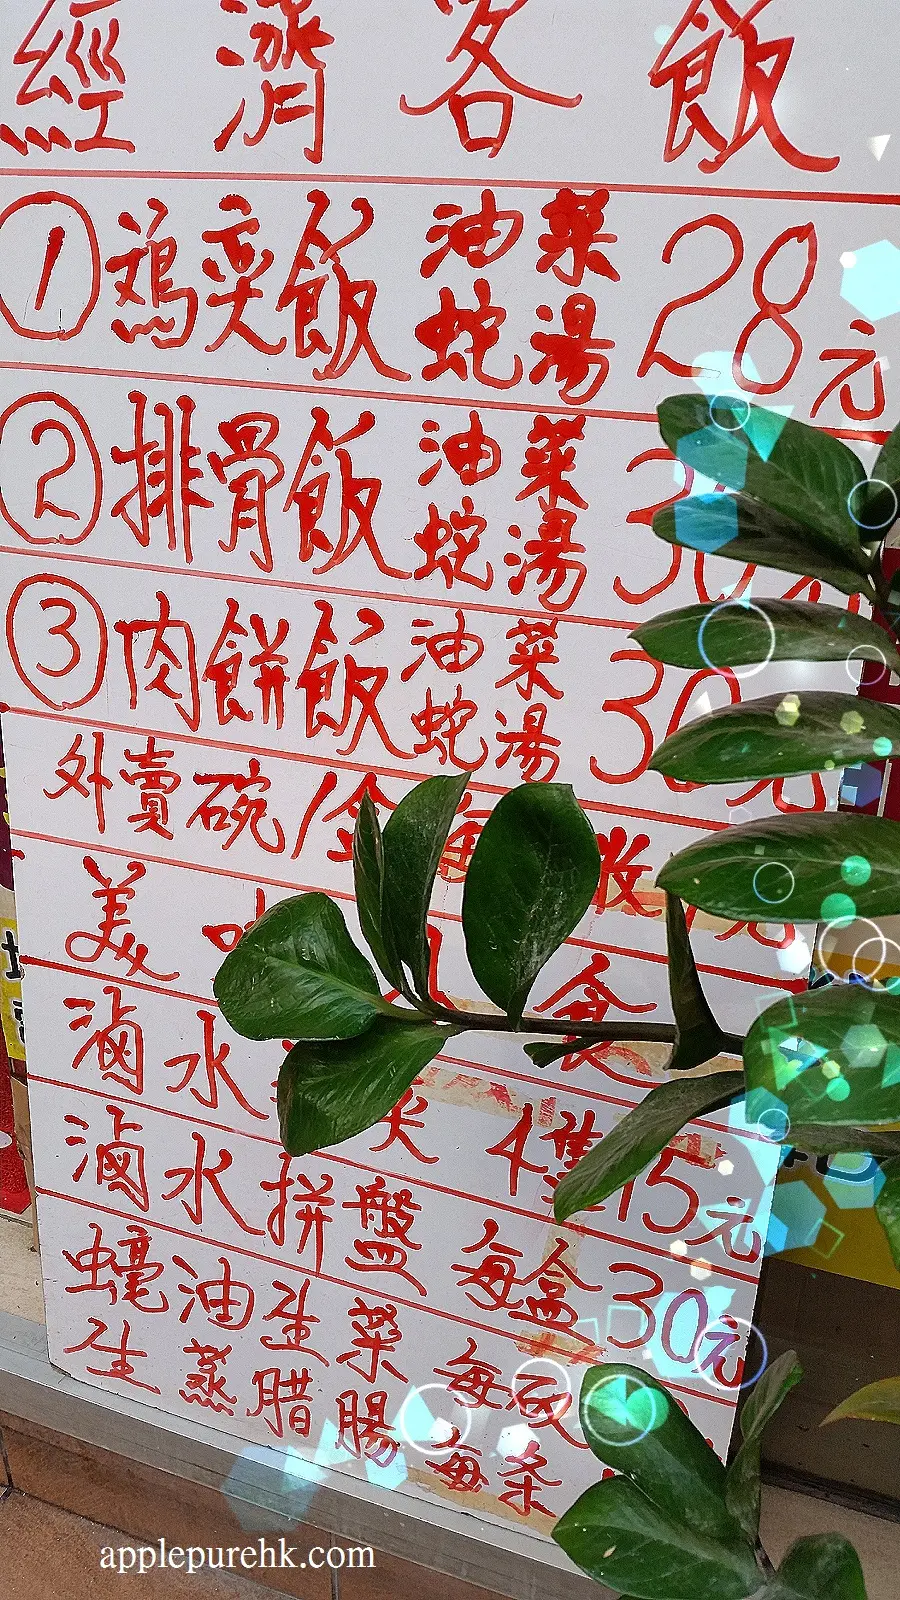 經濟客飯
① 鸡奕飯 油菜蛇湯 28元
② 排骨飯 油菜蛇湯 30
③ 肉餅飯 油菜蛇湯 30元
外賣碗/盒 每 收 元
美味 食
滷水 4種15元
滷水拼盤 每盒30元
蠔油生菜 每
生蒸腊腸 每条
applepurehk.com